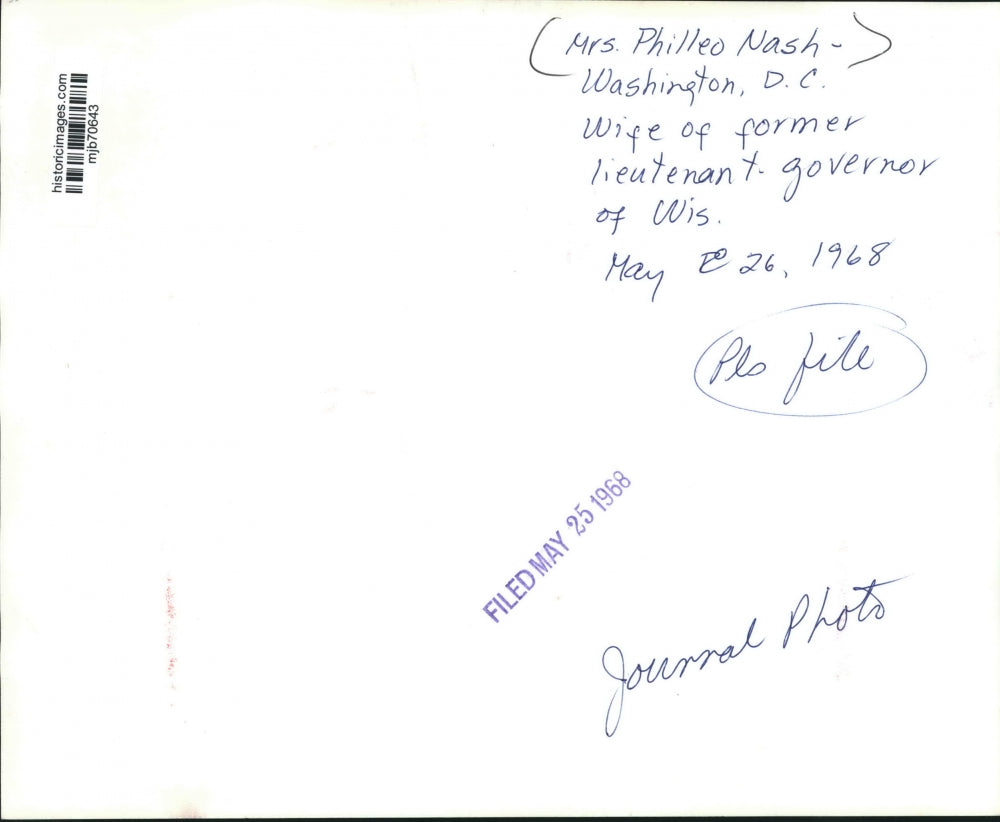 (Mrs. Philleo Nash-)
Washington, D.C.
Wife of former
lieutenant-governor
of Wis.
May 26, 1968
Pls file
FILED MAY 25 1968
Journal Photo
historicimages.com
mjb70643